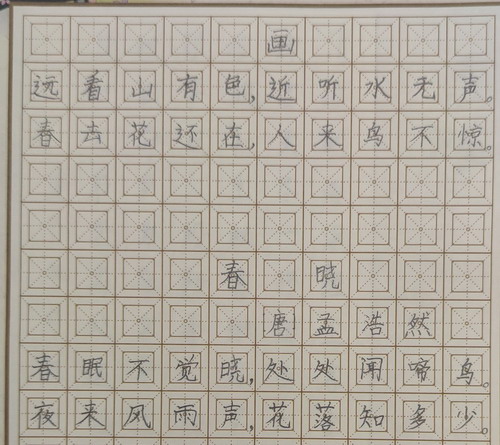 画
远看山有色,近听水无声。
春去花还在,人来鸟不惊。
春 晓
唐 孟浩然
春眠不觉晓,处处闻啼鸟。
夜来风雨声,花落知多少。